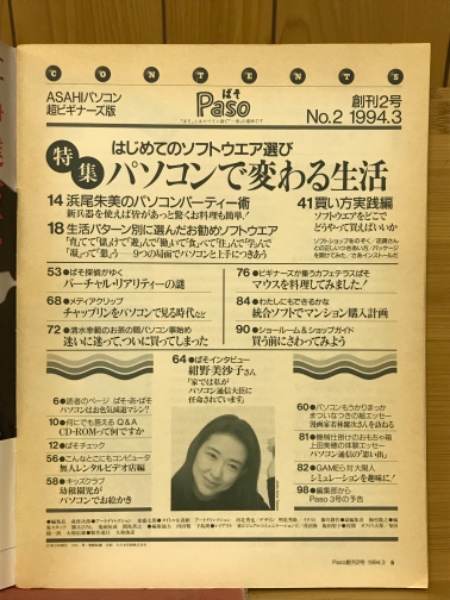 CONTENTS
ASAHIパソコン
超ビギナーズ版
ぱそ
Paso
創刊2号
No.2 1994.3
特集
はじめてのソフトウエア選び
パソコンで変わる生活
14 浜尾朱美のパソコンパーティー術
新兵器を使えば皆があっと驚くお料理も簡単!
18 生活パターン別に選んだお勧めソフトウエア
「育」てて「儲」けて「遊」んで「働」いて「食」べて「住」んで「学」んで
「凝」って「憩」う——9つの局面でパソコンと上手につきあう
41 買い方実践編
ソフトウエアをどこで
どうやって買えばいいか
53●ぱそ探偵がゆく
バーチャル・リアリティーの謎
68●メディアクリップ
チャップリンをパソコンで見る時代など
72●清水幸範のお茶の間パソコン事始め
迷いに迷って、ついに買ってしまった
76●ビギナーズが集うカフェテラスぱそ
マウスを料理してみました!
84●わたしにもできるかな
統合ソフトでマンション購入計画
90●ショールーム&ショップガイド
買う前にさわってみよう
64●ぱそインタビュー
紺野美沙子さん
「家では私が
パソコン通信大臣に
任命されています」
6●読者のページ ぱそ・あ・ぱそ
パソコンはお色気減退マシン?
10●何にでも答える Q&A
CD-ROMって何ですか
12●ぱそチェック
56●こんなとこにもコンピュータ
無人レンタルビデオ店編
58●キッズクラブ
幼稚園児が
パソコンでお絵かき
60●パソコンもうかりまっか
まついなつきの絵エッセー
81●機械仕掛けのおもちゃ箱
上田美穂の体験エッセー
パソコン通信の「思い出」
82●GAMEら対大隣人
シミュレーションを趣味に!
98●編集部から
Paso 3号の予告
Paso創刊2号 1994.3